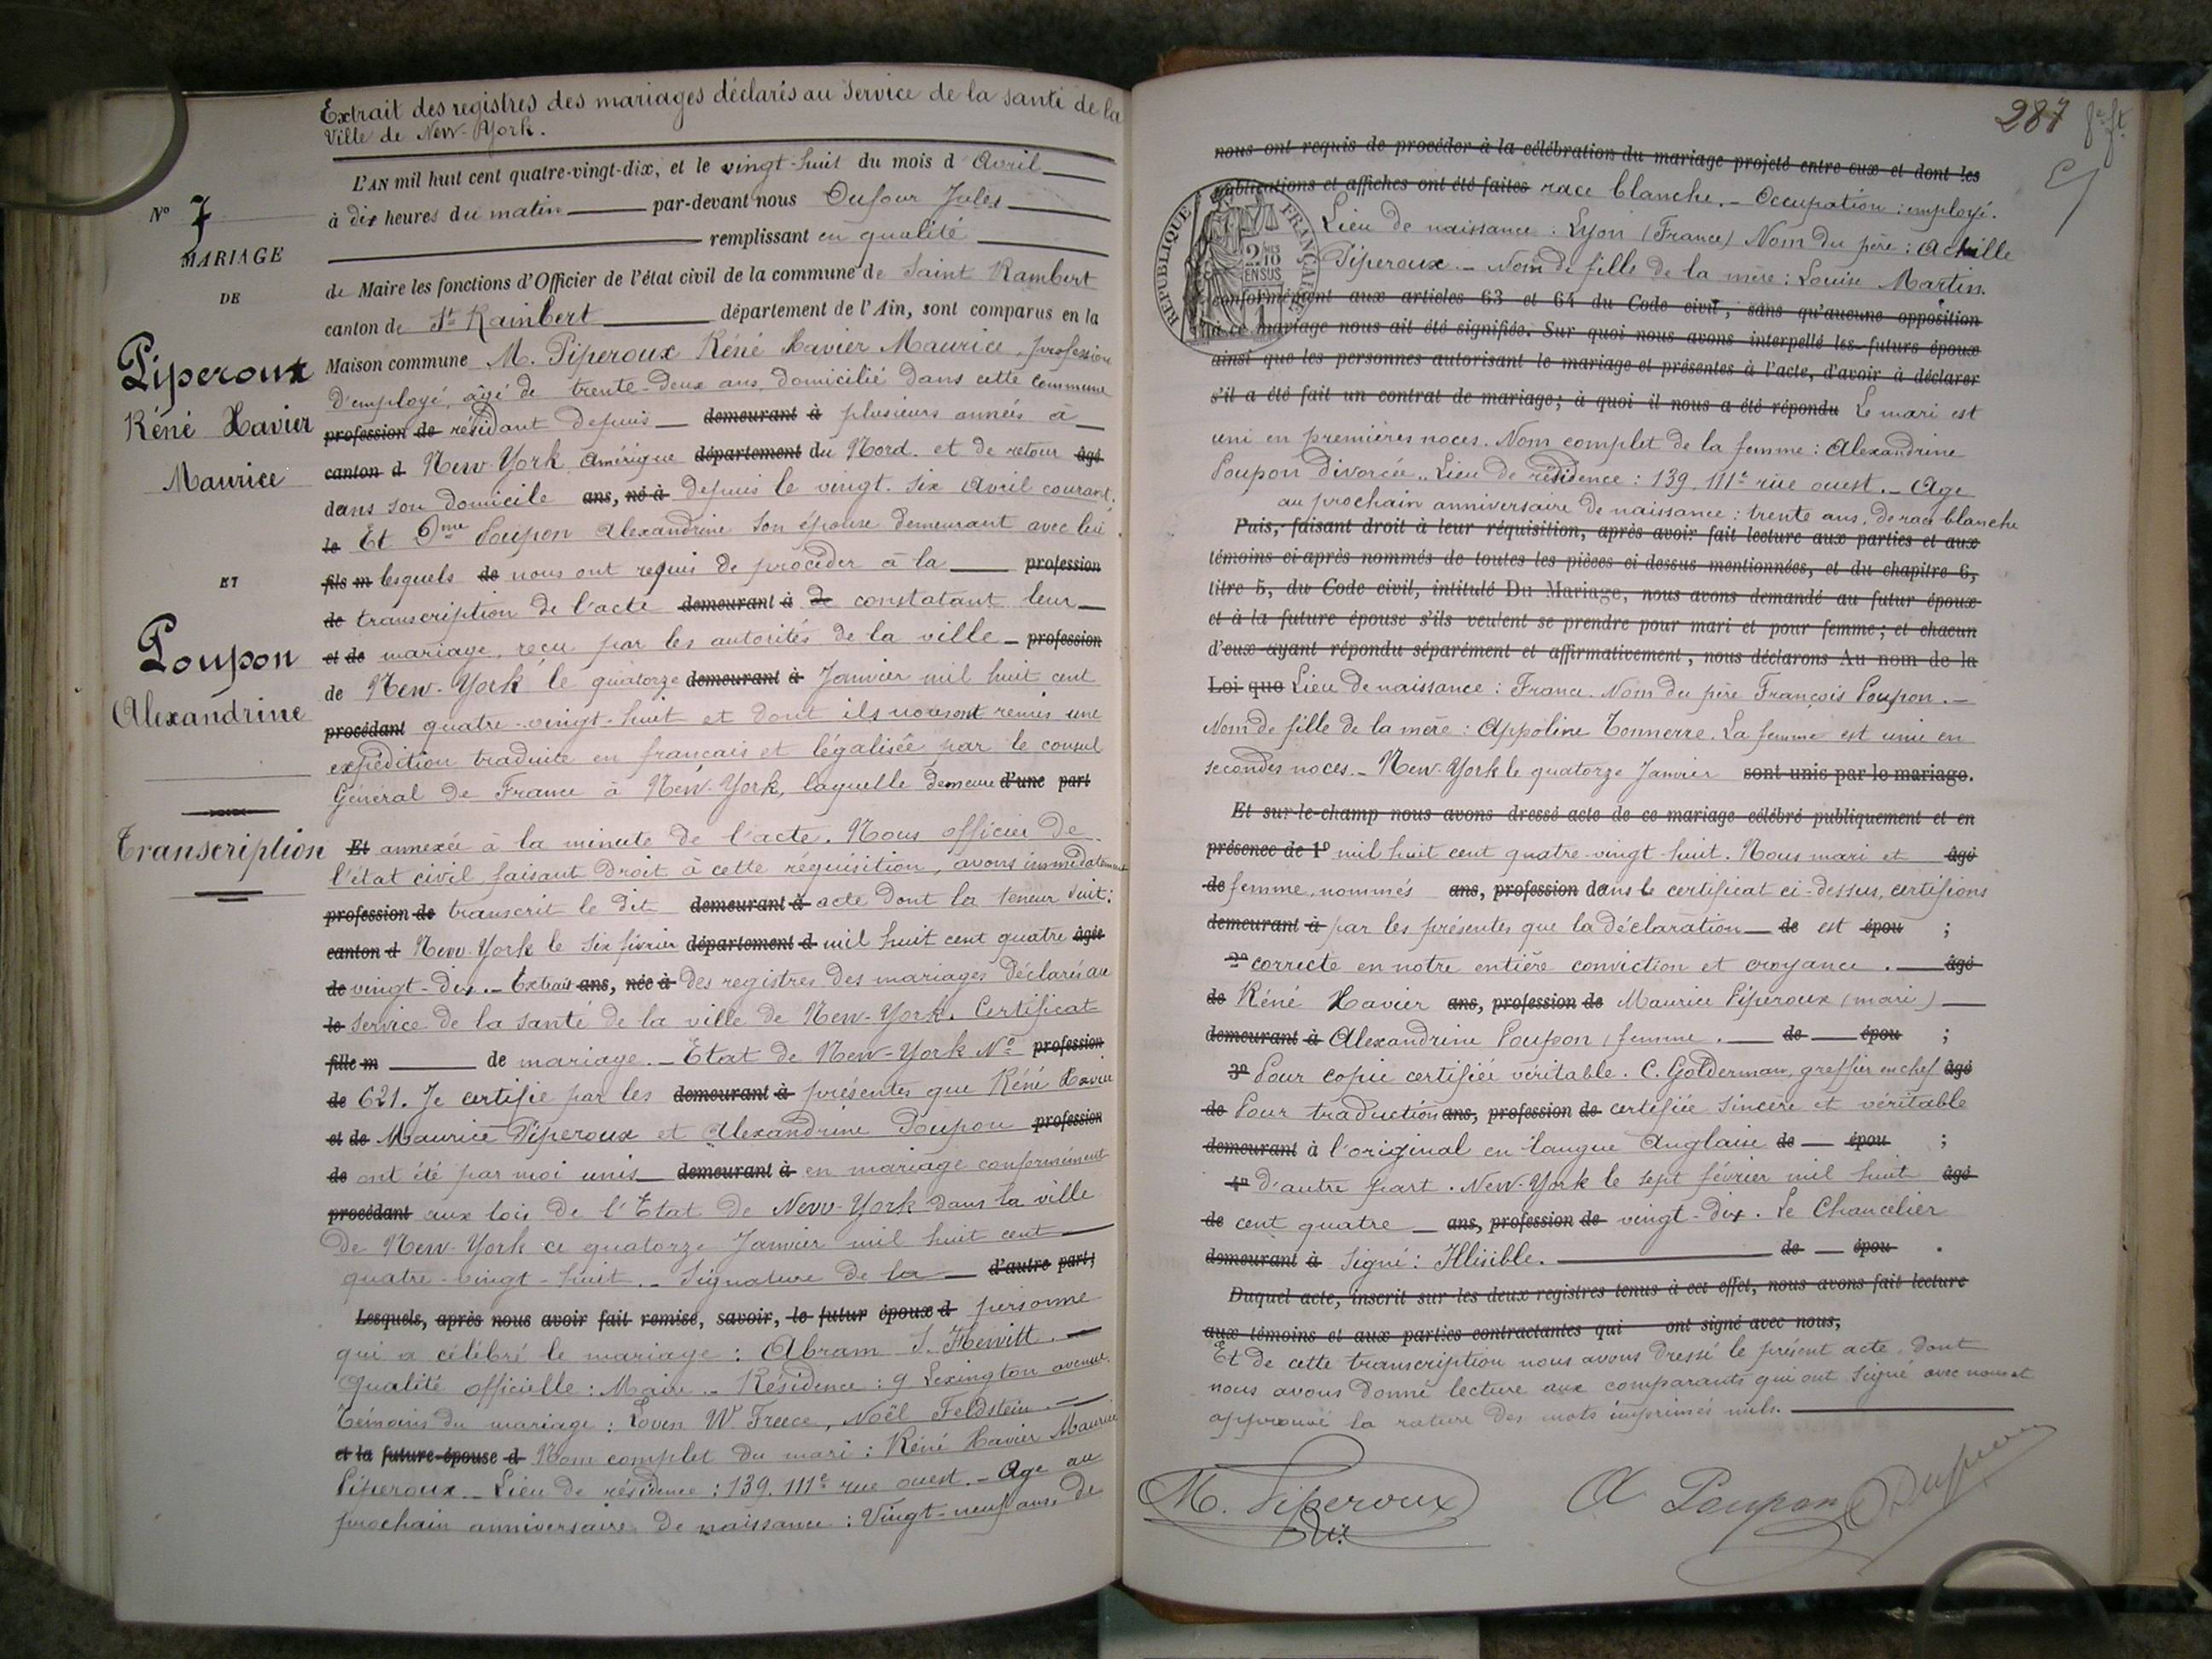 Extrait des registres des mariages déclarés au Service de la santé de la
Ville de New-York.
L'AN mil huit cent quatre-vingt-dix, et le vingt-huit du mois d'Avril
à dix heures du matin par-devant nous Dufour Jules
remplissant en qualité
de Maire les fonctions d'Officier de l'état civil de la commune de Saint Rambert
canton de St Rambert département de l'Ain, sont comparus en la
Maison commune M. Piperoux Réné Xavier Maurice, profession
d'employé, âgé de trente-deux ans, domicilié dans cette commune
profession de résidant depuis demeurant à plusieurs années à
canton d New-York Amérique département du Nord. et de retour âgé
dans son domicile ans, né à depuis le vingt-six Avril courant.
le Et Dme Poupon Alexandrine son épouse demeurant avec lui
fils m lesquels de nous ont requis de procéder à la profession
de transcription de l'acte demeurant à de constatant leur
et de mariage, reçu par les autorités de la ville profession
de New-York le quatorze demeurant à Janvier mil huit cent
procédant quatre-vingt-huit et dont ils nous ont remis une
expédition traduite en français et légalisée par le consul
Général de France à New-York, laquelle demeure d'une part
Et annexée à la minute de l'acte. Nous officier de
l'état civil faisant droit à cette réquisition, avons immédiatement
profession de transcrit le dit demeurant à acte dont la teneur suit:
canton d New-York le six février département d mil huit cent quatre âgée
de vingt-dix.- Extrait ans, née à des registres des mariages déclarés au
le service de la santé de la ville de New-York. Certificat
fille m de mariage.- Etat de New-York No profession
de 621. Je certifie par les demeurant à présentes que Réné Xavier
et de Maurice Piperoux et Alexandrine Poupon profession
de ont été par moi unis demeurant à en mariage conformément
procédant aux lois de l'Etat de New-York dans la ville
de New-York ce quatorze Janvier mil huit cent
quatre-vingt-huit.- Signature de la d'autre part;
Lesquels, après nous avoir fait remise, savoir, le futur époux d personne
qui a célébré le mariage: Abram S. Hewitt.
Qualité officielle: Maire.- Résidence: 9 Lexington avenue.
Témoins du mariage: Loven W. Freece, Noël Feldstein.
et la future épouse d Nom complet du mari: Réné Xavier Maurice
Piperoux.- Lieu de résidence: 139. 111e rue ouest.- Age au
prochain anniversaire de naissance: Vingt-neuf ans. de
No 7
MARIAGE
DE
Piperoux
Réné Xavier
Maurice
ET
Poupon
Alexandrine
Transcription
287
nous ont requis de procéder à la célébration du mariage projeté entre eux et dont les
publications et affiches ont été faites race blanche.- Occupation: employé.
Lieu de naissance: Lyon (France) Nom du père: Achille
Piperoux.- Nom de fille de la mère: Louise Martin.
conformément aux articles 63 et 64 du Code civil, sans qu'aucune opposition
à ce mariage nous ait été signifiée. Sur quoi nous avons interpellé les futurs époux
ainsi que les personnes autorisant le mariage et présentes à l'acte, d'avoir à déclarer
s'il a été fait un contrat de mariage; à quoi il nous a été répondu Le mari est
uni en premières noces. Nom complet de la femme: Alexandrine
Poupon divorcée.. Lieu de résidence: 139. 111e rue ouest.- Age
au prochain anniversaire de naissance: trente ans. de race blanche
Puis, faisant droit à leur réquisition, après avoir fait lecture aux parties et aux
témoins ci-après nommés de toutes les pièces ci dessus mentionnées, et du chapitre 6,
titre 5, du Code civil, intitulé Du Mariage, nous avons demandé au futur époux
et à la future épouse s'ils veulent se prendre pour mari et pour femme; et chacun
d'eux ayant répondu séparément et affirmativement, nous déclarons Au nom de la
Loi que Lieu de naissance: France. Nom du père François Poupon.-
Nom de fille de la mère: Appoline Tonnerre. La femme est unie en
secondes noces.- New-York le quatorze Janvier sont unis par le mariage.
Et sur-le-champ nous avons dressé acte de ce mariage célébré publiquement et en
présence de 1o mil huit cent quatre-vingt-huit. Nous mari et âgé
de femme, nommés ans, profession dans le certificat ci-dessus, certifions
demeurant à par les présentes que la déclaration de est épou ;
2o correcte en notre entière conviction et croyance. âgé
de Réné Xavier ans, profession de Maurice Piperoux (mari)
demeurant à Alexandrine Poupon (femme. de épou ;
3o Pour copie certifiée véritable. C. Golderman, greffier en chef âgé
de Pour traduction ans, profession de certifiée sincère et véritable
demeurant à l'original en langue Anglaise de épou ;
4o d'autre part. New-York le sept février mil huit âgé
de cent quatre ans, profession de vingt-dix. Le Chancelier
demeurant à Signé: Illisible. de épou .
Duquel acte, inscrit sur les deux registres tenus à cet effet, nous avons fait lecture
aux témoins et aux parties contractantes qui ont signé avec nous,
Et de cette transcription nous avons dressé le présent acte, dont
nous avons donné lecture aux comparants qui ont signé avec nous et
approuvé la rature des mots imprimés nuls.
M. Piperoux
A Poupon
Dufour
RÉPUBLIQUE FRANÇAISE
2/10 EN SUS